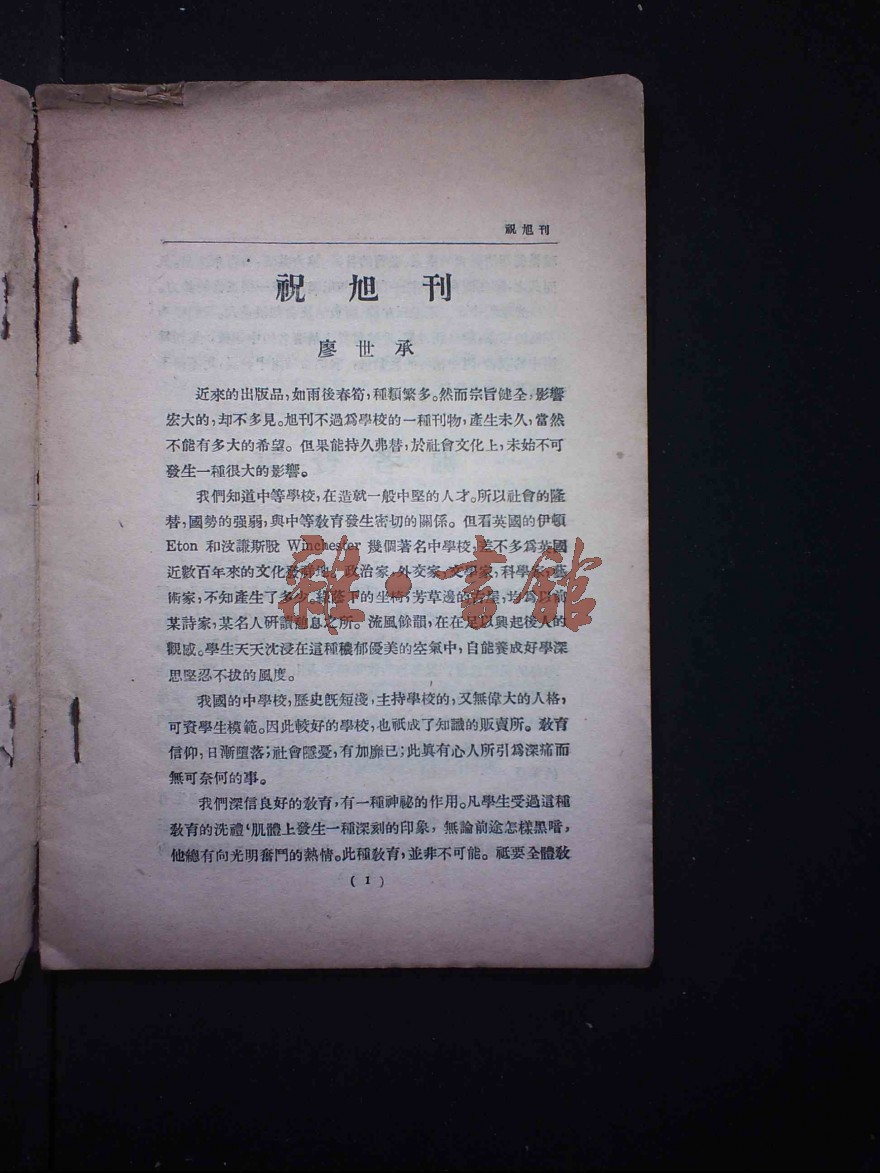 祝旭刊
祝旭刊
廖世承
近來的出版品,如雨後春筍,種類繁多。然而宗旨健全,影響
宏大的,却不多見。旭刊不過爲學校的一種刊物,產生未久,當然
不能有多大的希望。但果能持久弗替,於社會文化上,未始不可
發生一種很大的影響。
我們知道中等學校,在造就一般中堅的人才。所以社會的隆
替,國勢的强弱,與中等敎育發生密切的關係。但看英國的伊頓
Eton 和汝謙斯脫 Winchester 幾個著名中學校,差不多爲英國
近數百年來的文化發祥地。政治家,外交家,文學家,科學家,藝
術家,不知產生了多少。綠蔭下的坐椅,芳草邊的房屋,均爲以前
某詩家,某名人研讀憩息之所。流風餘韻,在在足以興起後人的
觀感。學生天天沈浸在這種穠郁優美的空氣中,自能養成好學深
思堅忍不拔的風度。
我國的中學校,歷史旣短淺,主持學校的,又無偉大的人格,
可資學生模範。因此較好的學校,也祇成了知識的販賣所。敎育
信仰,日漸墮落;社會隱憂,有加靡已;此眞有心人所引爲深痛而
無可奈何的事。
我們深信良好的敎育,有一種神祕的作用。凡學生受過這種
敎育的洗禮‘肌體上發生一種深刻的印象,無論前途怎樣黑暗,
他總有向光明奮鬥的熱情。此種敎育,並非不可能。祇要全體敎
( 1 )
雜·書館